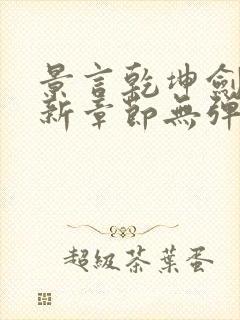 景言乾坤劍
新章節無彈
超級茶葉蛋